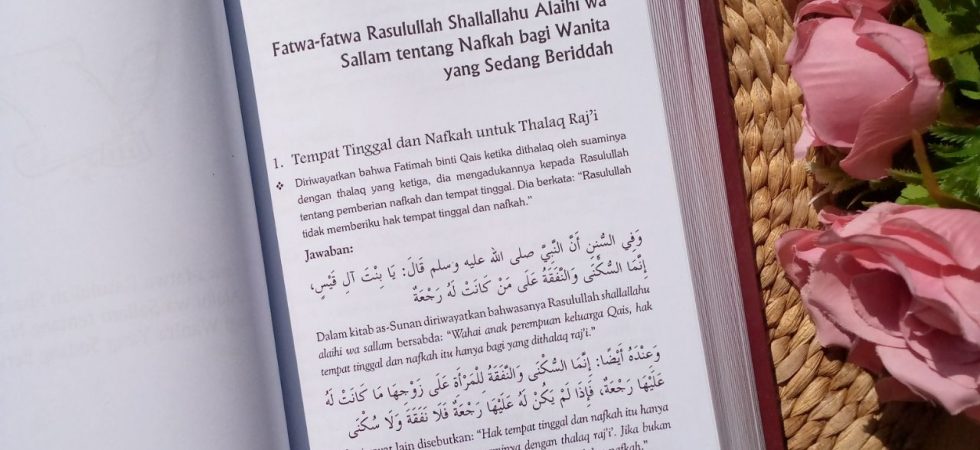 Fatwa-fatwa Rasulullah Shallallahu Alaihi wa
Sallam tentang Nafkah bagi Wanita
yang Sedang Beriddah
1. Tempat Tinggal dan Nafkah untuk Thalaq Raj'i
❖ Diriwayatkan bahwa Fatimah binti Qais ketika dithalaq oleh suaminya
dengan thalaq yang ketiga, dia mengadukannya kepada Rasulullah
tentang pemberian nafkah dan tempat tinggal. Dia berkata: “Rasulullah
tidak memberiku hak tempat tinggal dan nafkah.”
Jawaban:
وَفِي السُّنَنِ أَنَّ النَّبِيَّ صلى الله عليه وسلم قَالَ: يَا بِنْتَ آلِ قَيْسٍ،
إِنَّمَا السُّكْنَى وَالنَّفَقَةُ عَلَى مَنْ كَانَتْ لَهُ رَجْعَةٌ
Dalam kitab as-Sunan diriwayatkan bahwasanya Rasulullah shallallahu
alaihi wa sallam bersabda: “Wahai anak perempuan keluarga Qais, hak
tempat tinggal dan nafkah itu hanya bagi yang dithalaq raj'i.”
وَعِنْدَهُ أَيْضًا: إِنَّمَا السُّكْنَى وَالنَّفَقَةُ لِلْمَرْأَةِ عَلَى زَوْجِهَا مَا كَانَتْ لَهُ
عَلَيْهَا رَجْعَةٌ، فَإِذَا لَمْ يَكُنْ لَهُ عَلَيْهَا رَجْعَةٌ فَلَا نَفَقَةَ وَلَا سُكْنَى
lain disebutkan: “Hak tempat tinggal dan nafkah itu hanya
suaminya dengan thalaq raj'i'. Jika bukan
nafkah.”